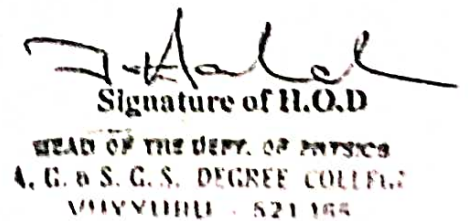 Signature of H.O.D
HEAD OF THE DEPT. OF PHYSICS
A. G. & S. G. S. DEGREE COLLEGE
VUYYURU - 521 165